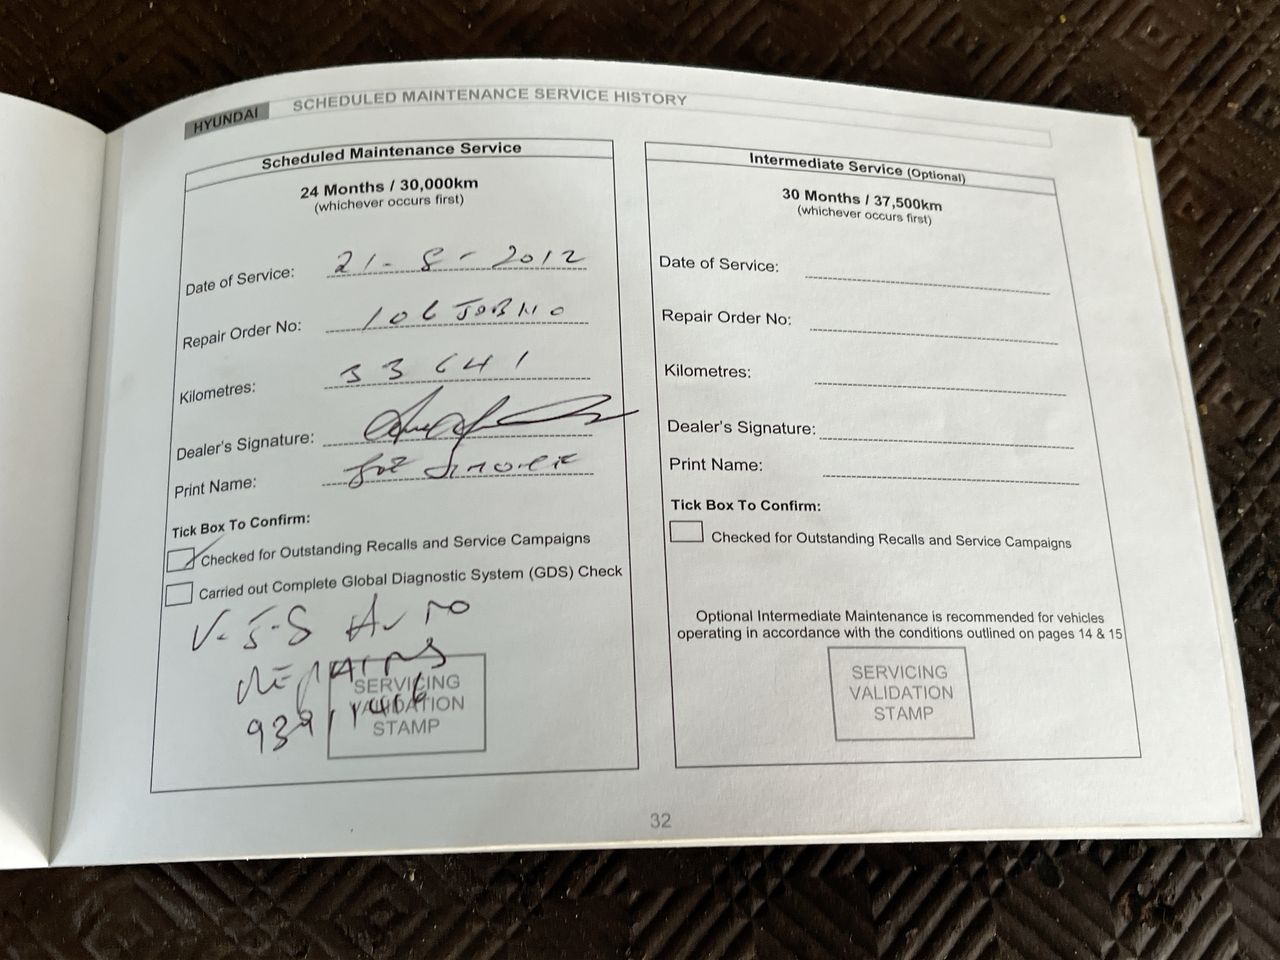 HYUNDAI
SCHEDULED MAINTENANCE SERVICE HISTORY
Scheduled Maintenance Service
24 Months / 30,000km
(whichever occurs first)
Date of Service: 21-8-2012
Repair Order No: 106 JOB NO
Kilometres: 33641
Dealer's Signature:
Print Name:
Tick Box To Confirm:
Checked for Outstanding Recalls and Service Campaigns
Carried out Complete Global Diagnostic System (GDS) Check
AUTO
REPAIRS
SERVICING
VALIDATION
STAMP
Intermediate Service (Optional)
30 Months / 37,500km
(whichever occurs first)
Date of Service:
Repair Order No:
Kilometres:
Dealer's Signature:
Print Name:
Tick Box To Confirm:
Checked for Outstanding Recalls and Service Campaigns
Optional Intermediate Maintenance is recommended for vehicles
operating in accordance with the conditions outlined on pages 14 & 15
SERVICING
VALIDATION
STAMP
32